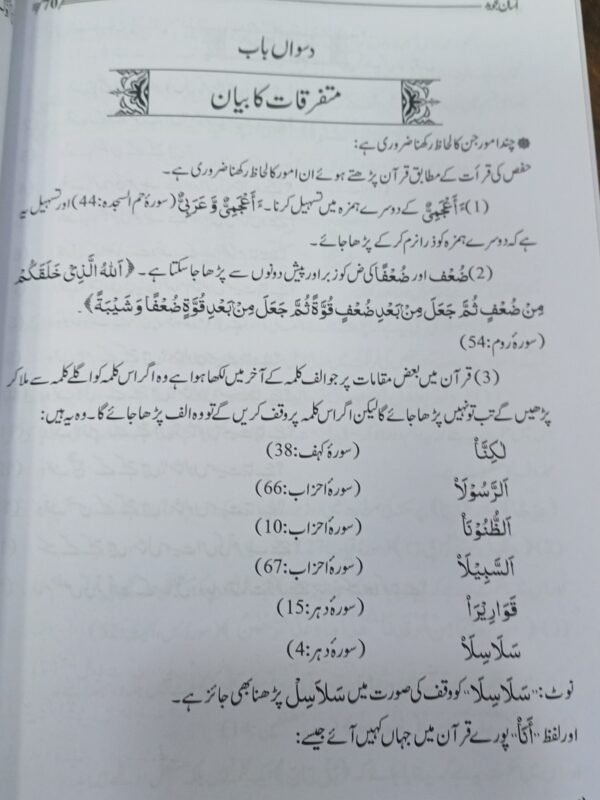 آسان تجوید
70
دسواں باب
متفرقات کا بیان
چند امور جن کا لحاظ رکھنا ضروری ہے:
حفص کی قرأت کے مطابق قرآن پڑھتے ہوئے ان امور کا لحاظ رکھنا ضروری ہے۔
(1) ءَاَعْجَمِیٌّ کے دوسرے ہمزہ میں تسہیل کرنا۔ ءَاَعْجَمِیٌّ وَّ عَرَبِیٌّ (سورۂ حم السجدہ: 44) اور تسہیل یہ
ہے کہ دوسرے ہمزہ کو ذرا نرم کر کے پڑھا جائے۔
(2) ضُعْف اور ضُعْفًا کی ض کو زبر اور پیش دونوں سے پڑھا جا سکتا ہے۔ ﴿اَللهُ الَّذِیْ خَلَقَكُمْ
مِنْ ضُعْفٍ ثُمَّ جَعَلَ مِنْ بَعْدِ ضُعْفٍ قُوَّةً ثُمَّ جَعَلَ مِنْ بَعْدِ قُوَّةٍ ضُعْفًا وَ شَیْبَةً﴾۔
(سورۂ روم: 54)
(3) قرآن میں بعض مقامات پر جو الف کلمہ کے آخر میں لکھا ہوا ہے وہ اگر اس کلمہ کو اگلے کلمہ سے ملا کر
پڑھیں گے تب تو نہیں پڑھا جائے گا لیکن اگر اس کلمہ پر وقف کریں گے تو وہ الف پڑھا جائے گا۔ وہ یہ ہیں:
لٰكِنَّاْ (سورۂ کہف: 38)
اَلرَّسُوْلَاْ (سورۂ احزاب: 66)
اَلظُّنُوْنَاْ (سورۂ احزاب: 10)
اَلسَّبِیْلَاْ (سورۂ احزاب: 67)
قَوَارِیْرَاْ (سورۂ دہر: 15)
سَلَاسِلَاْ (سورۂ دہر: 4)
نوٹ: ”سَلَاسِلَا“ کو وقف کی صورت میں سَلَاسِلْ پڑھنا بھی جائز ہے۔
اور لفظ ”اَنَاْ“ پورے قرآن میں جہاں کہیں آئے جیسے: